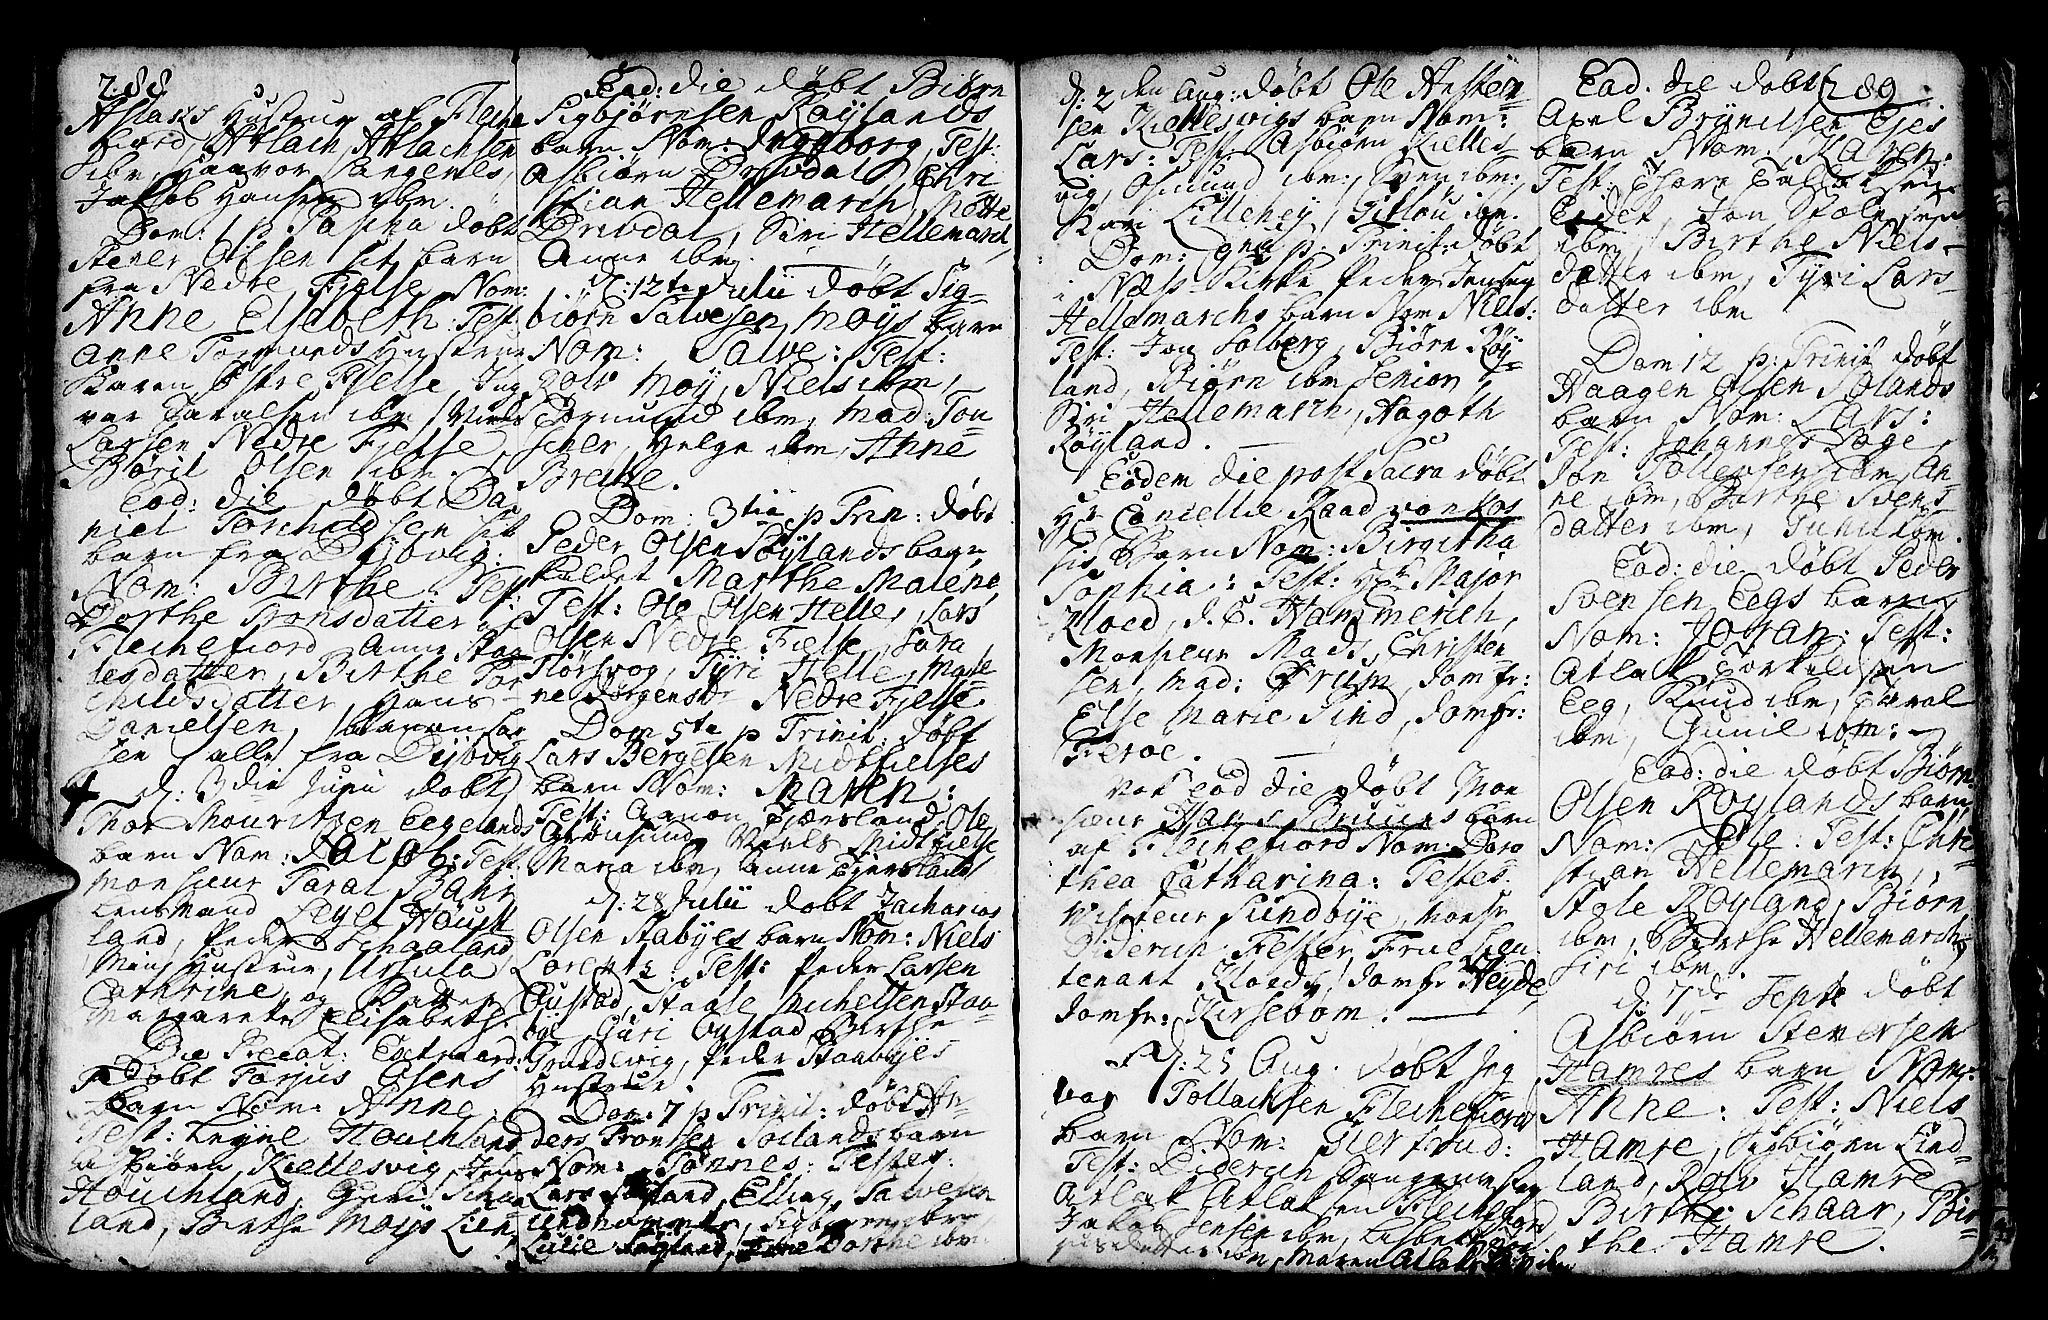 288
Aslaks Hustrue af Fleche
fiord, Atlach Atlachsen
ibm, Haavor Langenes,
Jakob Hansen ibm.
Dom: 1 p Pascha døbt
Stener Olsen sit barn
fra Nedre Fjelse Nom:
Anne Elsebeth: Test:
Anne Tormunds Hustrue
Karen Østre Fjelse, Ing
var Taralsen ibm, Niels
Larsen Nedre Fjelse,
Boril Olsen ibm.
Ead: die døbt Da
niel Torchildsen sit
barn fra Dybvig:
Nom: Birthe. Test:
Dorthe Tronsdatter i
Flechefiord Anne Aan
lesdatter, Birthe Tor
childsdatter, Hans
Danielsen, Lar
sen alle fra Dybvig
d: 3die Juni døbt
Thor Mouritzen Eegelands
barn Nom: Jacob: Test:
Monsieur Taral Bahr
Lensmand Legel Houch
land, Peder Schaaland
Min Hustrue, Ursula
Cathrine, og Datter
Margarete Elisabeth.
Die Precat: Extraord:
døbt Torjus Olsens
barn Nom: Anne:
Test: Legne Houchland
Asbiørn Kiellesvig, Jens
Houchland, Guri Schaa
land, Birthe Moys Lien
Ead: die døbt Biørn
Sigbjørnsen Røylands
barn Nom: Ingeborg, Test:
Asbiørn Drivdal, Chri
stian Hellemarch, Mette
Drivdal, Siri Hellemarch,
Anne ibm.
d: 12te Julii døbt Sig-
biørn Salvesen Moys barn
Nom: Salve: Test:
Rolv Moy, Niels ibm,
Tormund ibm, Mad: Ton
scher, Helge ibm, Anne
Brekke.
Dom: 3tia p Trin: døbt
Peder Olsen Søylands barn
kaldet Marthe Malene
Test: Ole Olsen Helle, Lars
Olsen Nedre Fielse, Sara
Flørsvog, Tyri Helle, Mag-
ne Jørgensdr Nedre Fjelse
Dom 5ta p Trinit: døbt
Lars Bergesen Midtfielses
barn Nom: Maren:
Test: Aanon Fjersland, Ole
Grønsund, Niels Midtfielse
Maria ibm, Anne Fjersland
d: 28 Julii døbt Zacharias
Olsen Stabyes barn Nom: Niels
Lorentz. Test: Peder Larsen
Oustad, Staale Michelsen Staa-
bye Guri Oustad Berthe
Grundevig, Peder Staabyes
Hustrue.
Dom: 7 p Trinit: døbt An-
ders Tronsen Søelands barn
Nom: Tønnes: Testes:
Lars Søyland, Elling Salvesen
Lindhammer, Sigbiørn ibm
Lucie Søyland, Dorthe ibm.
d: 2den Aug: døbt Ole Austen-
sen Kiellesvigs barn Nom:
Lars: Test: Asbiørn Kielles
vig, Osmund ibm, Sven ibm,
Kari Lillehey, Gitlou ibm.
Dom: 9na p: Trinit: døbt
i Næs Kirke Peder Jensen
Hellemarchs barn Nom Niels:
Test: Jon Solberg, Biørn Røy-
land, Biørn ibm Senior,
Siri Hellemarch, Aagoth
Røyland.
Eodem die post Sacra døbt
Hr Cancellie Raad von Kos
sis Barn Nom: Birgitha
Sophia: Test: Hr Major
Kloed, d. C. Hammerich,
Monsieur Mads Christen
sen, Mad: Ørum, Jomfr:
Else Marie Lind, Jomfr:
Feroe.
Not Ead die døbt Mon
sieur Hans Bruuns barn
af Flechefiord Nom: Doro
thea Catharina: Testes
Visiteur Sundbye, Monsr
Diderich Fester, Frue Lieu
tenant Kloeds, Jomfr Heyde
Jomfr: Kirsebom.
d: 25 Aug. døbt Ing
var Tollachsen Flechefiord
barn Nom: Giertrud:
Test: Diderich
Atlak Atlaksen Flechef
Jakob Jensen ibm, Lisbet
ibm, Maren
Ead: die døbt 289
Axel Brynilsen Eges
barn Nom: Karen:
Test: Thore Tallaksen
Eedet, Jon Stolesen
ibm, Birthe Niels-
datter ibm, Tyri Lars-
datter ibm
Dom 12 p: Trinit døbt
Haagen Olsen Sølands
barn Nom: Lars:
Test: Johannes Loge,
Jon Tollefsen ibm, An-
ne ibm, Birthe Svens
datter ibm, Gunild ibm.
Ead: die døbt Peder
Svensen Eegs barn
Nom: Joran: Test:
Atlak Torkildsen
Eeg, Knud ibm, Taral
ibm, Gunil ibm:
Ead: die døbt Biørn
Olsen Røylands barn
Nom: Ole: Test: Chri-
stian Hellemarch,
Stole Røyland, Biørn
ibm, Birthe Hellemarch,
Siri ibm.
d: 7de Septr døbt
Asbiørn Stenersen
Hamres barn Nom:
Anne: Test: Niels
Hamre, Sigbiørn Lind-
land, Rolv Hamre
Birthe Schaar, Bir-
the Hamre.